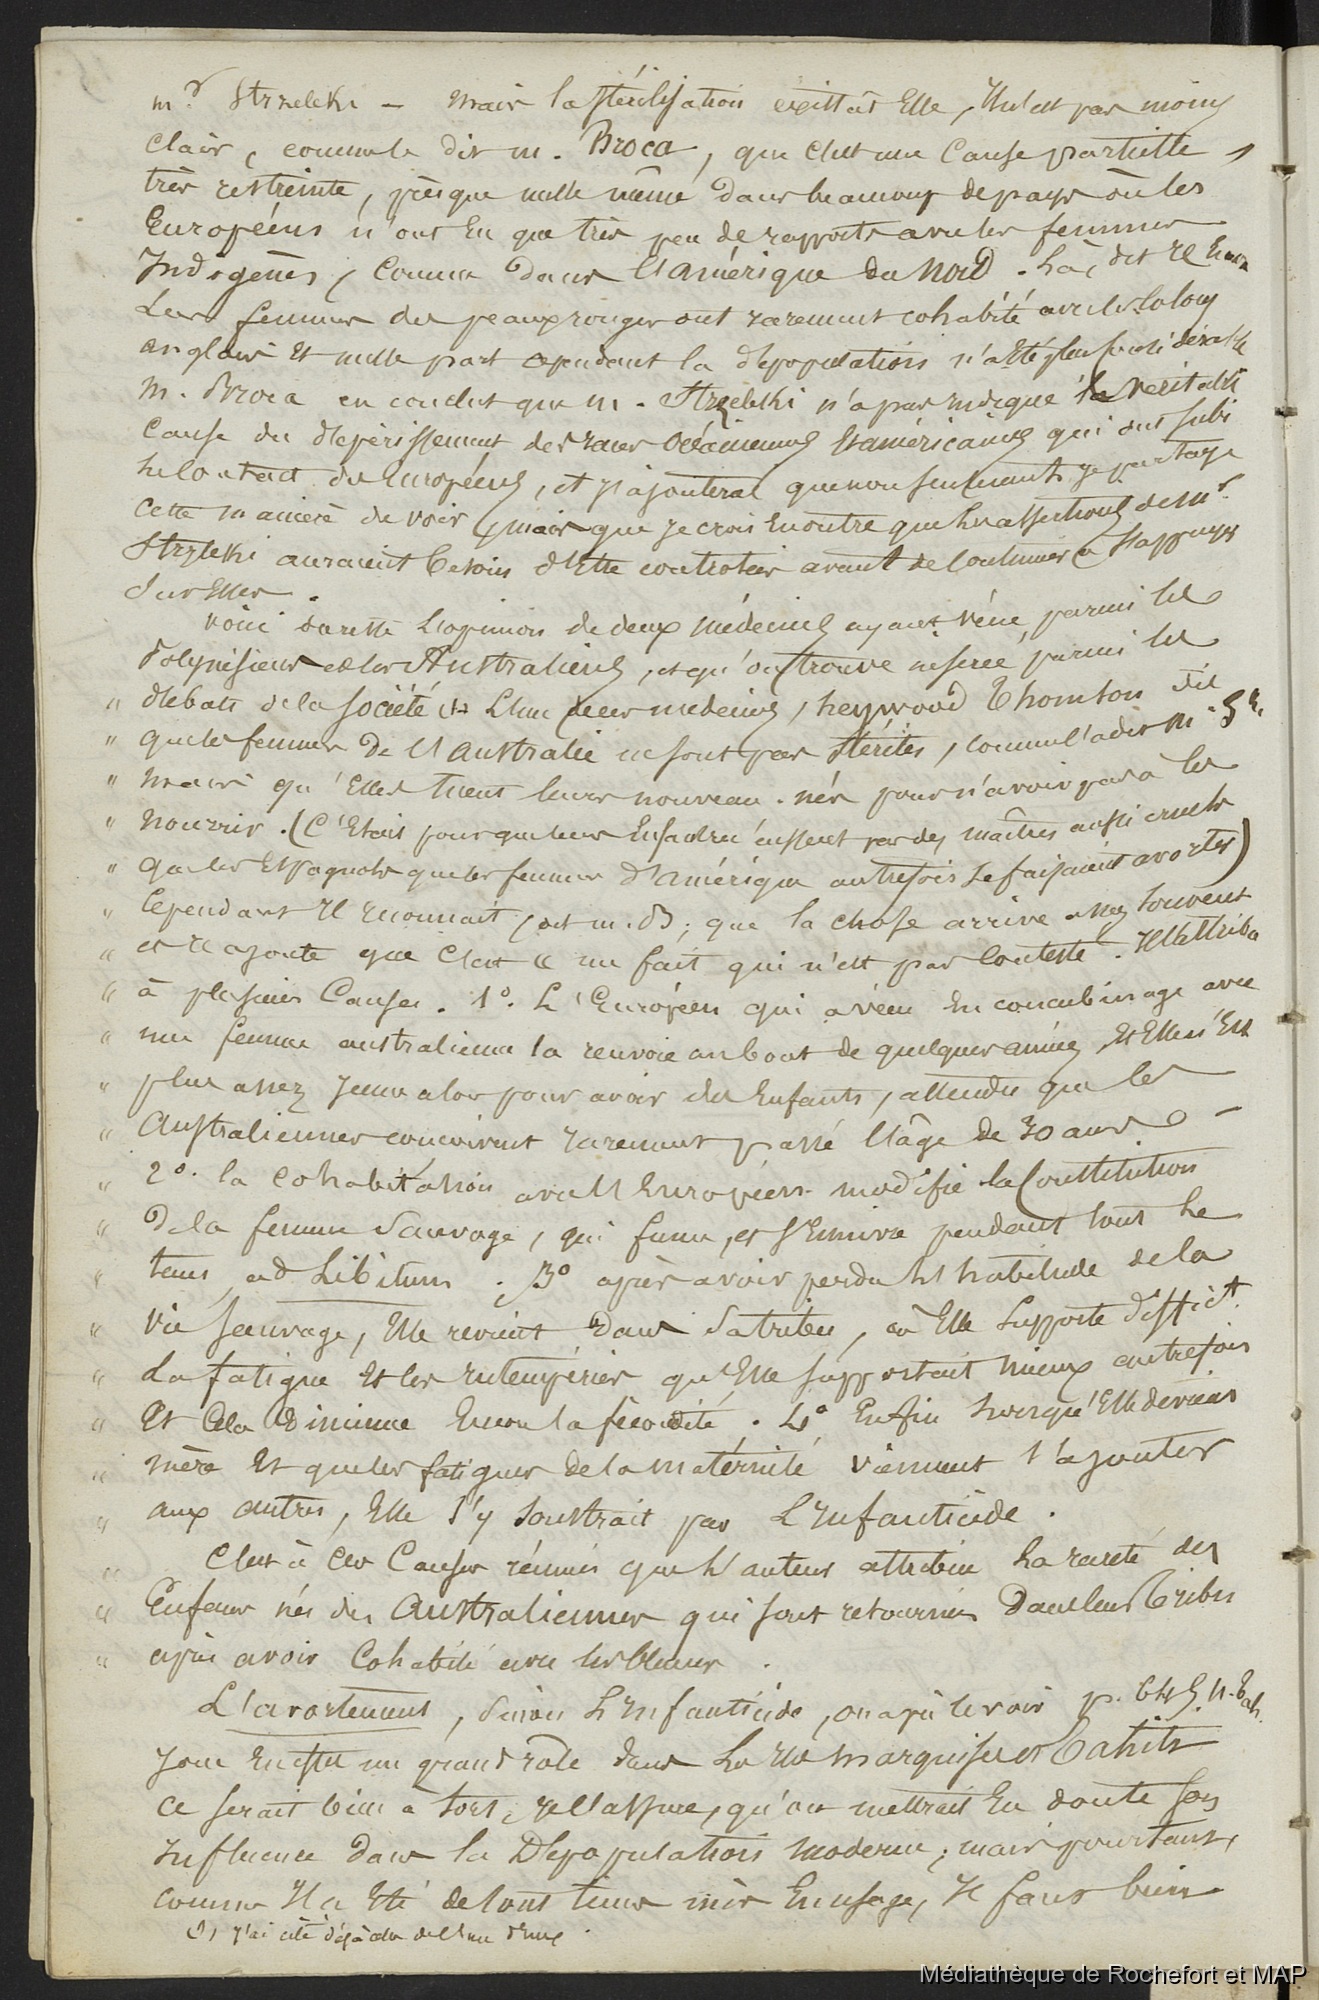 mr Strzeleki – mais la stérilisation existât Elle, Il n'est pas moins
clair, comme le dit m. Broca, que c'est une Cause partielle,
très restreinte, presque nulle même dans beaucoup de pays où les
Européens n'ont Eu que très peu de rapports avec les femmes
Indigènes, comme dans l'amérique du Nord. là, dit il
Les femmes des peaux rouges ont rarement cohabité avec les colons
anglais Et nulle part cependant la dépopulation n'a été plus considérable
M. Broca en conclut que m. Strzeleki n'a pas indiqué la véritable
cause du dépérissement des races Océaniennes Et américaines qui ont subi
le contact des Européens, et j'ajouterai que non seulement je partage
cette manière de voir, mais que je crois En outre que les assertions de Mr
Strzleki auraient besoin d'Etre controlées avant de continuer à s'appuyer
sur Elles.
Voici du reste L'opinion de deux médecins ayant vécu parmi les
Polynésiens et les Australiens, et qu'on trouve inserée parmi les
" débats de la Société (1) L'un de ces médecins, heywood Thomson dit
" que les femmes de l'australie ne sont pas stériles, comme l'a dit M. S.
" mais qu'Elles tuent leurs nouveau-nés pour n'avoir pas à les
" nourrir. (C'Etait pour que leurs Enfants n'eussent pas des maîtres aussi cruels
" que les Espagnols que les femmes d'amérique autrefois se faisaient avorter)
" Cependant Il reconnait, dit m. B; que la chose arrive assez souvent
" et Il ajoute que c'est « un fait qui n'est pas contesté. Il l'attribue
" à plusieurs Causes. 1°. L'Européen qui a vécu En concubinage avec
" une femme australienne la renvoie au bout de quelques années, Et Elle n'Est
" plus assez jeune alors pour avoir des Enfants, attendu que les
" Australiennes conçoivent rarement passé l'âge de 30 ans –
" 2°. la cohabitation avec l'Européen modifie la Constitution
" De la femme Sauvage, qui fume, et s'Enivre pendant tout le
" tems ad Libitum. 3° après avoir perdu les habitude de la
" vie sauvage, Elle revient dans sa tribu, où Elle supporte difficit.
" La fatigue Et les intempéries qu'Elle supportait mieux autrefois
" Et cela diminue Encore la fécondité. 4° Enfin lorsqu'Elle devient
" mère Et que les fatigues de la maternité viennent s'ajouter
" aux autres, Elle s'y soustrait par L'Infanticide.
" C'est à ces Causes réunies que l'auteur attribue la rareté des
" Enfans nés des Australiennes qui sont retournées Dans leurs Tribus
" après avoir Cohabité avec les blancs.
L'avortement, sinon L'Infanticide, on a pû le voir p.
joue En effet un grand rôle dans les Iles Marquises et Tahiti
Ce serait bien à tort, je l'assure, qu'on mettrait En doute son
Influence dans la Dépopulation moderne; mais pourtant,
comme Il a Eté de tout tems mis En usage, Il faut bien
(1) J'ai cité déjà celle de l'un d'eux.
Médiathèque de Rochefort et MAP